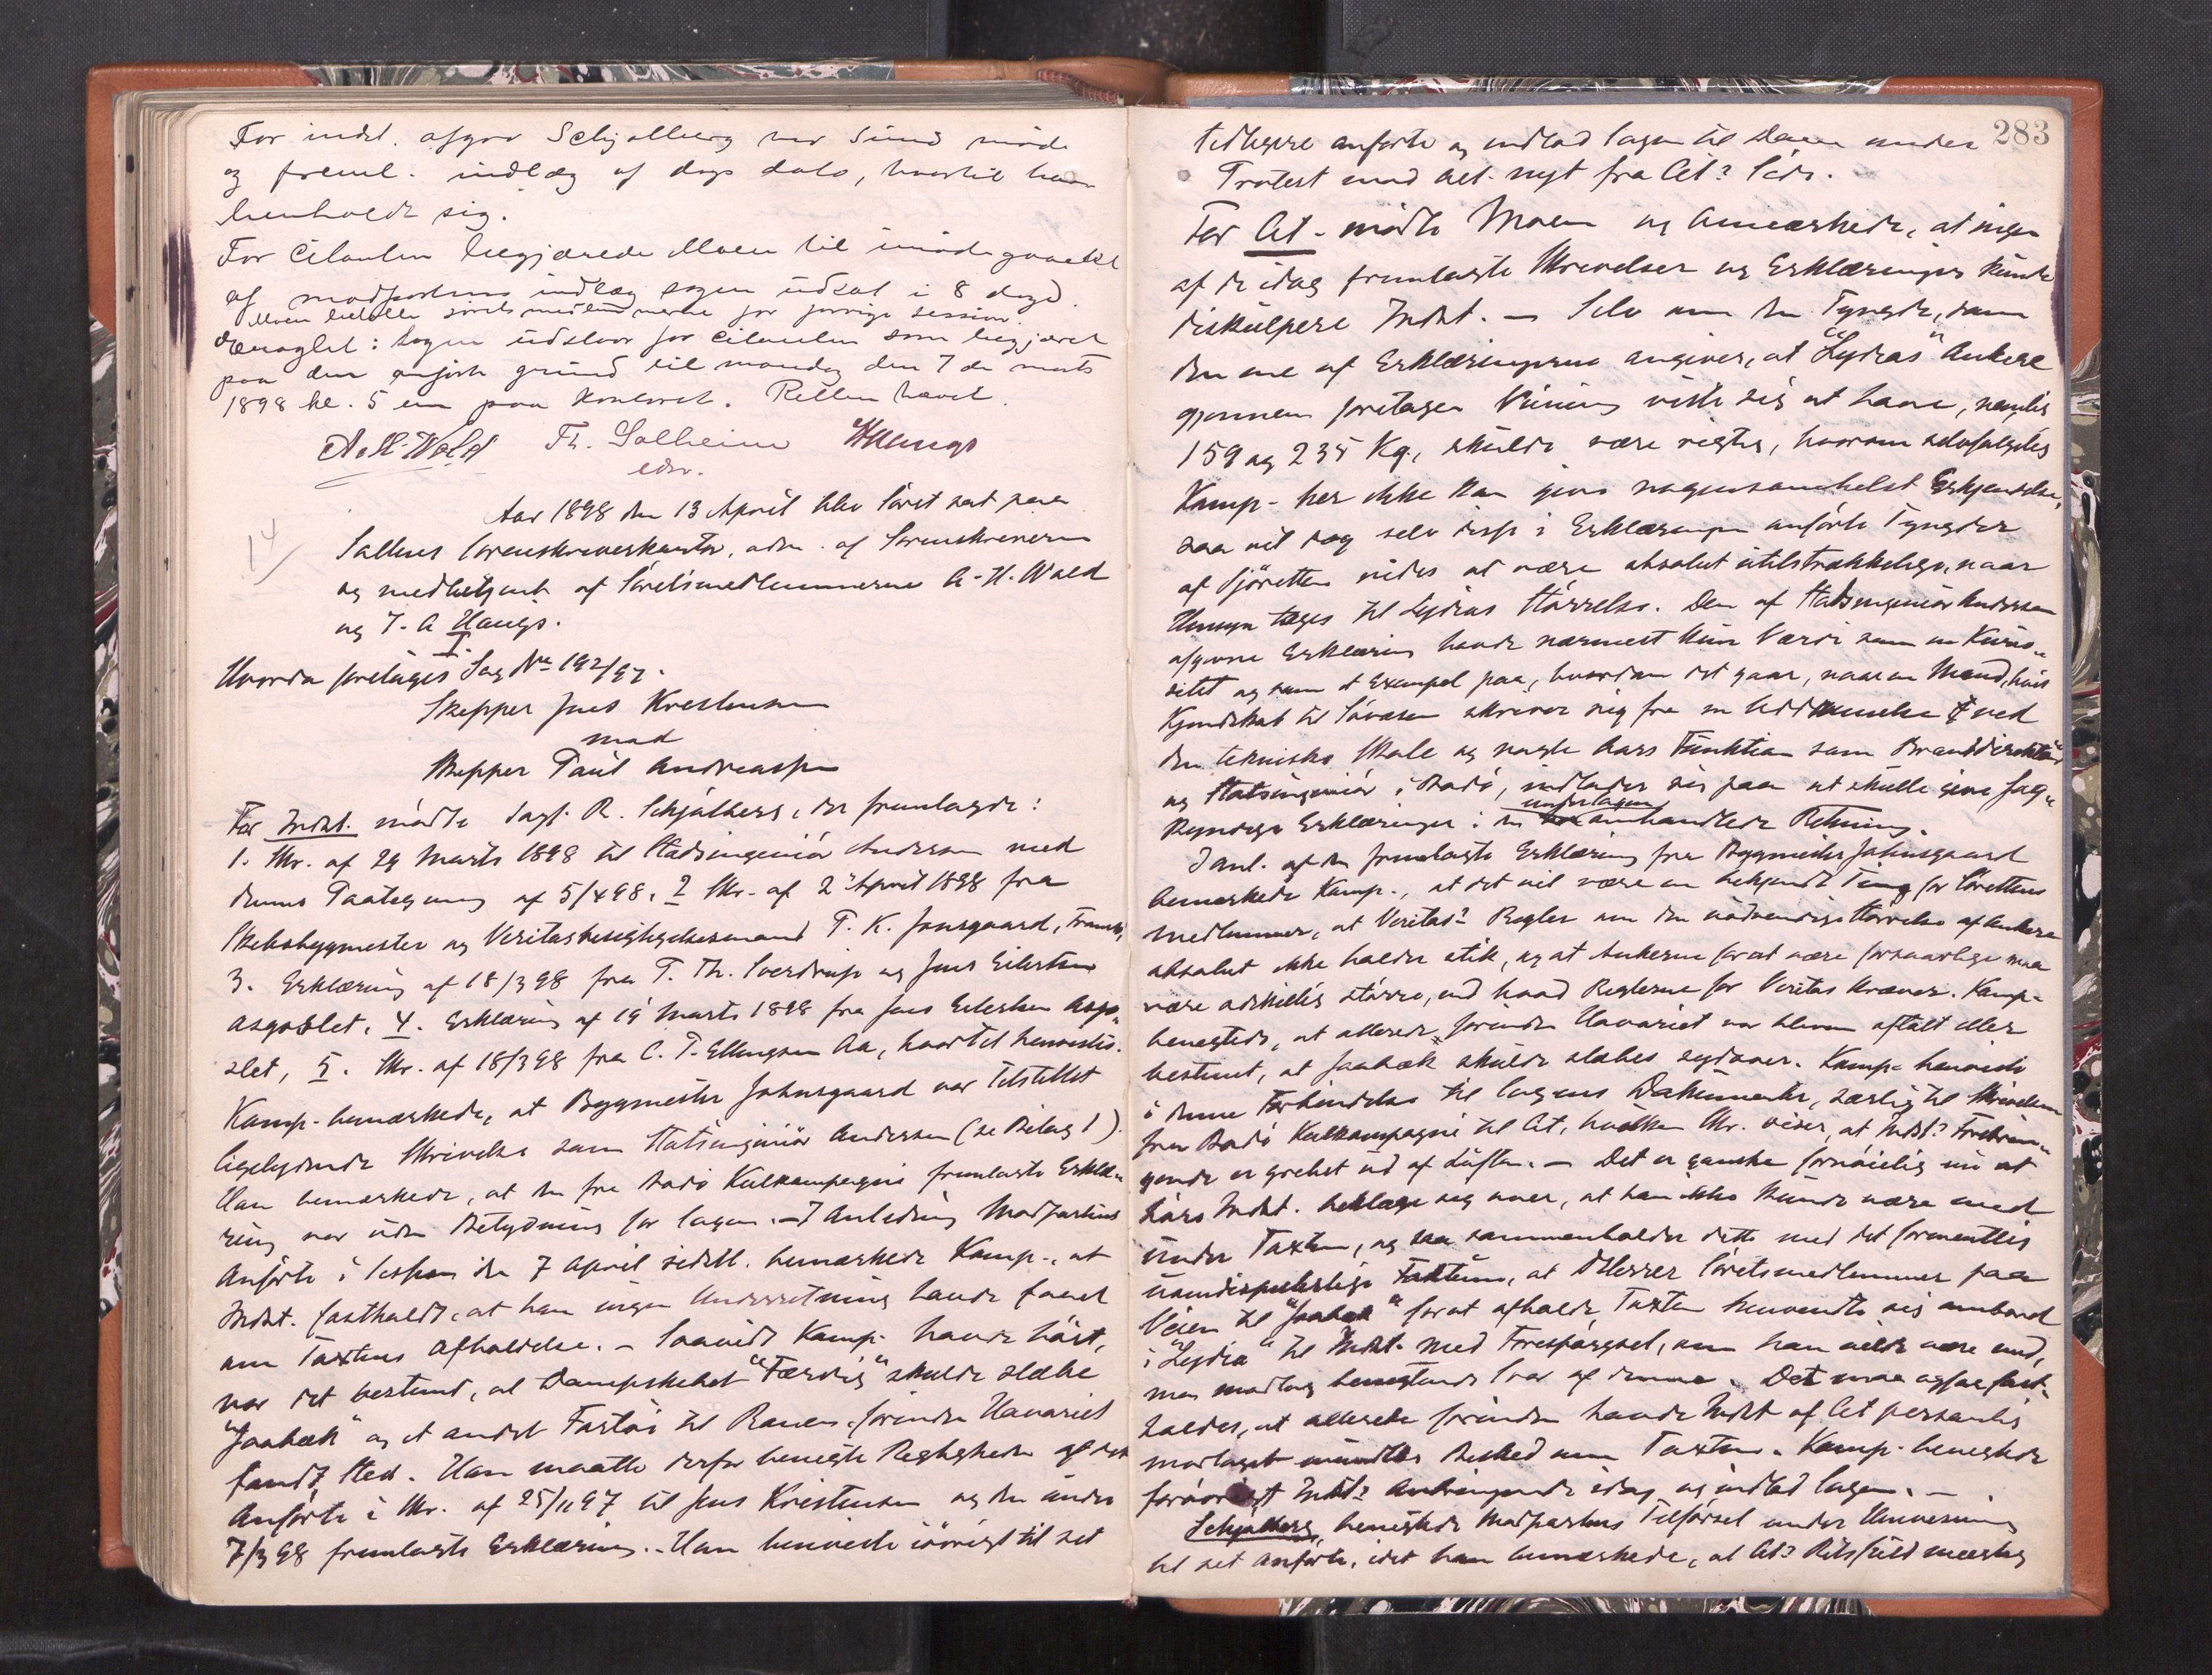 For indst. afgav Schjølberg ved Sund møde
og freml. indlæg af dags dato, hvortil han
henholdt sig.
For Citanten begjærede Moen til imødegaaelse
af modpartens indlæg sagen udsat i 8 dage.
Moen bilagde søretsmedlemmerne for forrige session.
Eragtet: Sagen udstaar for citanten som begjæret
paa den anførte grund til mandag den 7de marts
1898 kl. 5 em paa kontoret. Retten hævet.
A. H. Wold Th. Solheim Haugs
edsv.
Aar 1898 den 13 April blev Søret sat paa
Saltens Sorenskriverkontor, adm. af Sorenskriveren
og medbetjent af Søretsmedlemmerne A. H. Wold
og J. A Haugs.
14
I.
Hvorda foretages Sag No 192/97.
Skipper Jens Kristensen
mod
Skipper Paul Andreassen
For Indst. mødte Sagf. R. Schjølberg, der fremlagde:
1. Skr. af 29 Marts 1898 til Stadsingeniör Andersen med
dennes Paategning af 5/4 98. 2 Skr. af 2 April 1898 fra
Skibsbygmester og Veritasbesigtigelsesmand P. K. Jonsgaard,
3. Erklæring af 18/3 98 fra P. Th. Sverdrup og Jens Eilertsen
4. Erklæring af 19 Marts 1898 fra Jens Eilertsen
5. Skr. af 18/3 98 fra C. T. Ellingsen Aa, hvortil henvistes.
Komp. bemærkede, at Bygmester Johnsgaard var tilstillet
ligelydende Skrivelse som Stadsingeniör Andersen (se Bilag 1).
Han bemærkede, at den fra Bodö Kulkompagni fremlagte Erklæ-
ring var uden Betydning for Sagen. - I Anledning Modpartens
Anførte i Session den 7 April sidstl. bemærkede Komp., at
Indst. fastholdt, at han ingen Underretning havde faaet
om Taxtens Afholdelse. - Saavidt Komp. havde hört,
var det bestemt, at Dampskibet "Færdig" skulde slæbe
"Jaabæk" og et andet Fartöi til Ranen, förinden Havariet
fandt Sted. Han maatte derfor benegte Rigtigheden af det
Anførte i Skr. af 25/11 97 til Jens Kristensen og den under
7/3 98 fremlagte Erklæring. - Han henviste iövrigt til det
283
tidligere anførte og indlod Sagen til Doms under
Protest mod alt nyt fra Cit? Side.
For Cit. mödte Moen og bemærkede, at ingen
af de idag fremlagte Skrivelser og Erklæringer kunde
diskulpere Indst. - Selv om den Tyngde, som
den ene af Erklæringerne angiver, at "Lydias" Ankere
gjennem foretagen Veining viste sig at have, nemlig
159 og 235 Kg., skulde være rigtig, hvorom selvfølgelig
Komp. her ikke kan give nogensomhelst Erkjendelse,
saa vil dog selv disse i Erklæringen anførte Tyngder
af Sjöretten vides at være absolut utilstrækkelige, naar
Hensyn tages til Lydias Störrelse. Den af Stadsingeniör Andersen
afgivne Erklæring havde nærmest kun Værdi som en Kurio-
sitet og som et Exempel paa, hvordan det gaar, naar en Mand, hvis
Kjendskab til Sövæsen skriver sig fra en Uddannelse ved
den tekniske Skole og nogle Aars Funktion som Branddirektör
og Stadsingeniör i Bodö, indlader sig paa at skulle give sag-
kyndige Erklæringer i den omhandlede Retning.
I Anl. af den fremlagte Erklæring fra Bygmester Johnsgaard
bemærkede Komp., at det vil være en bekjendt Ting for Sörettens
Medlemmer, at Veritas? Regler om den nödvendige Störrelse af Ankere
absolut ikke holder stik, og at Ankerne for at være forsvarlige maa
være adskillig större, end hvad Reglerne for Veritas kræver. Komp.
benegtede, at allerede förinden Havariet var bleven aftalt eller
bestemt, at Jaabæk skulde slæbes sydover. Komp. henviste
i denne Forbindelse til Sagens Dokumenter, særlig til Skrivelsen
fra Bodö Kulkompagni til Cit, hvilken Skr. viser, at Indst? Frebrin-
gende er grebet ud af Luften. - Det er ganske fornöielig nu at
höre Indst. beklage sig over, at han ikke kunde være med
under Taxten, og saa sammenholder dette med det formentlig
uomdisputerlige Faktum, at D'Herrer Söretsmedlemmer paa
Veien til "Jaabæk" for at afholde Taxten henvendte sig ombord
i "Lydia" til Indst. med Forespörgsel, om han vilde være med,
men modtog benegtende Svar af denne. Det maa ogsaa fast-
holdes, at allerede förinden havde Indst af Cit personlig
modtaget mundtlig Besked om Taxten. Komp. benegtede
forövrigt Indst? Anbringende idag og indlod Sagen. -
Schjølberg benegtede Modpartens Tilförsel under Henvisning
til det Anførte, idet han bemærkede, at Cit? Retsfuldmægtig